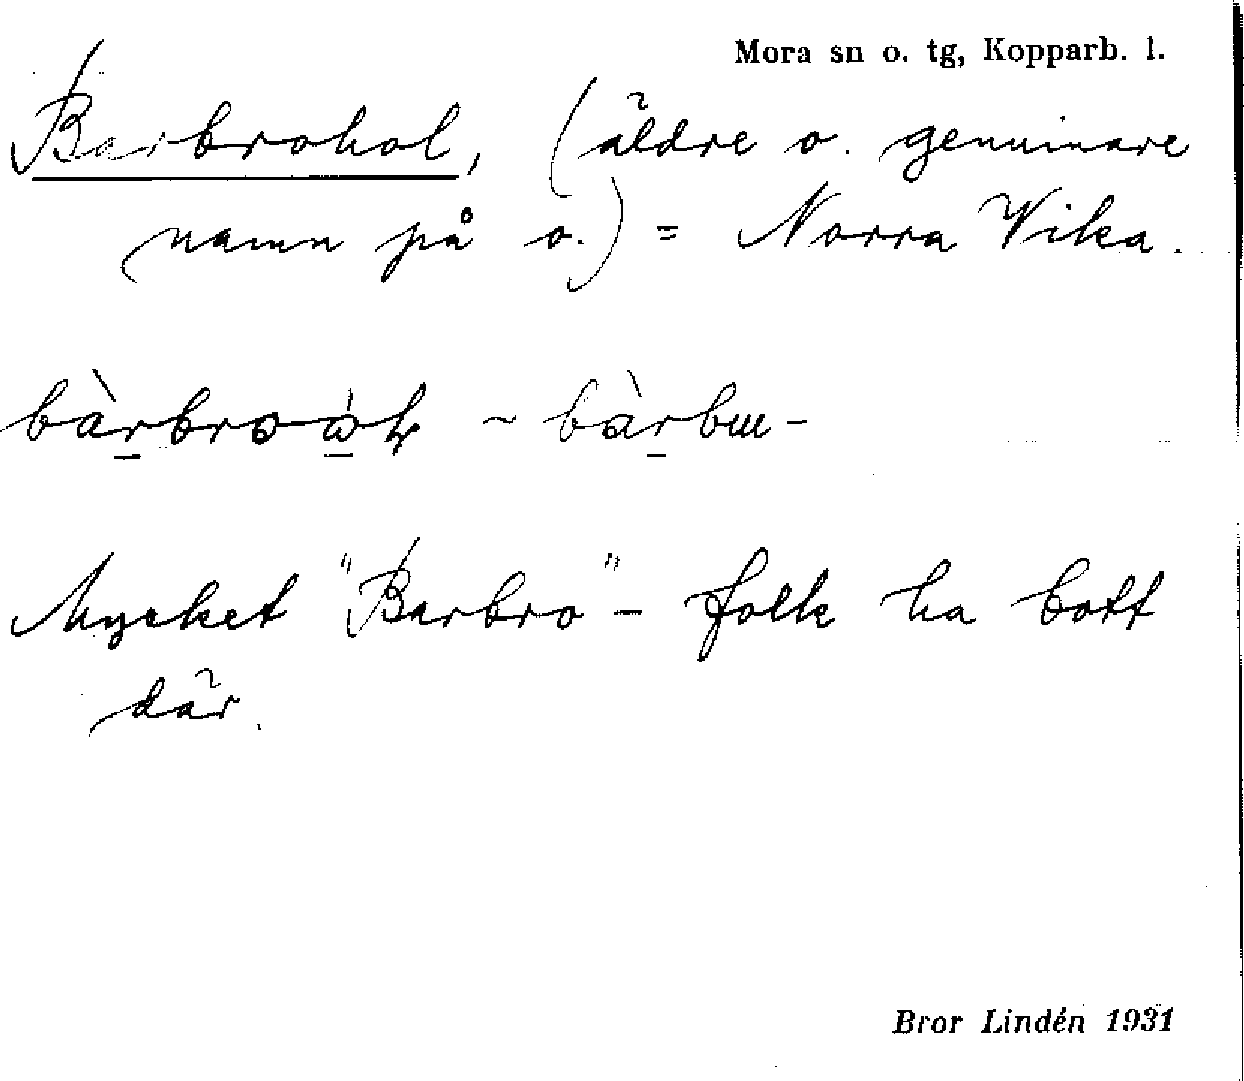 Mora sn o. tg, Kopparb. l.
Barbrohol, (äldre o. genuinare
namn på o.) = Norra Vika.
~
Mycket "Barbro" - folk ha bott
där.
Bror Lindén 1931